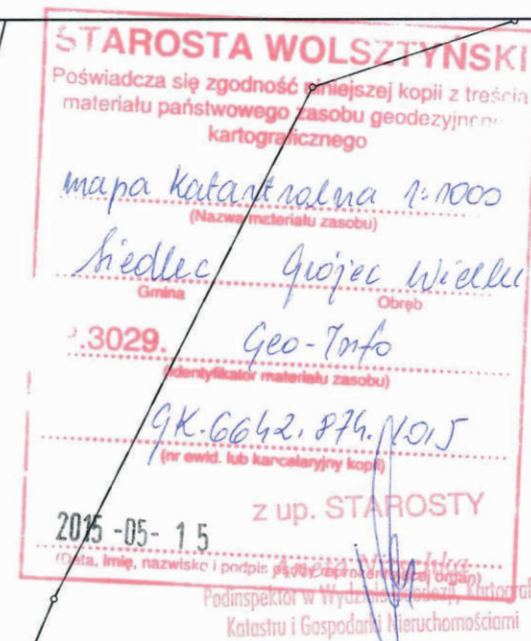 STAROSTA WOLSZTYŃSKI
Poświadcza się zgodność niniejszej kopii z treścią
materiału państwowego zasobu geodezyjnego
kartograficznego
mapa katastralna 1:1000
(Nazwa materiału zasobu)
Siedlec Grójec Wielki
Gmina Obręb
.3029. Geo-Info
(identyfikator materiału zasobu)
GK.6642.874.2015
(nr ewid. lub kancelaryjny kopii)
z up. STAROSTY
2015 -05- 15
(Data, imię, nazwisko i podpis osoby reprezentującej organ)
Podinspektor w Wydziale Geodezji, Kartografii
Katastru i Gospodarki Nieruchomościami